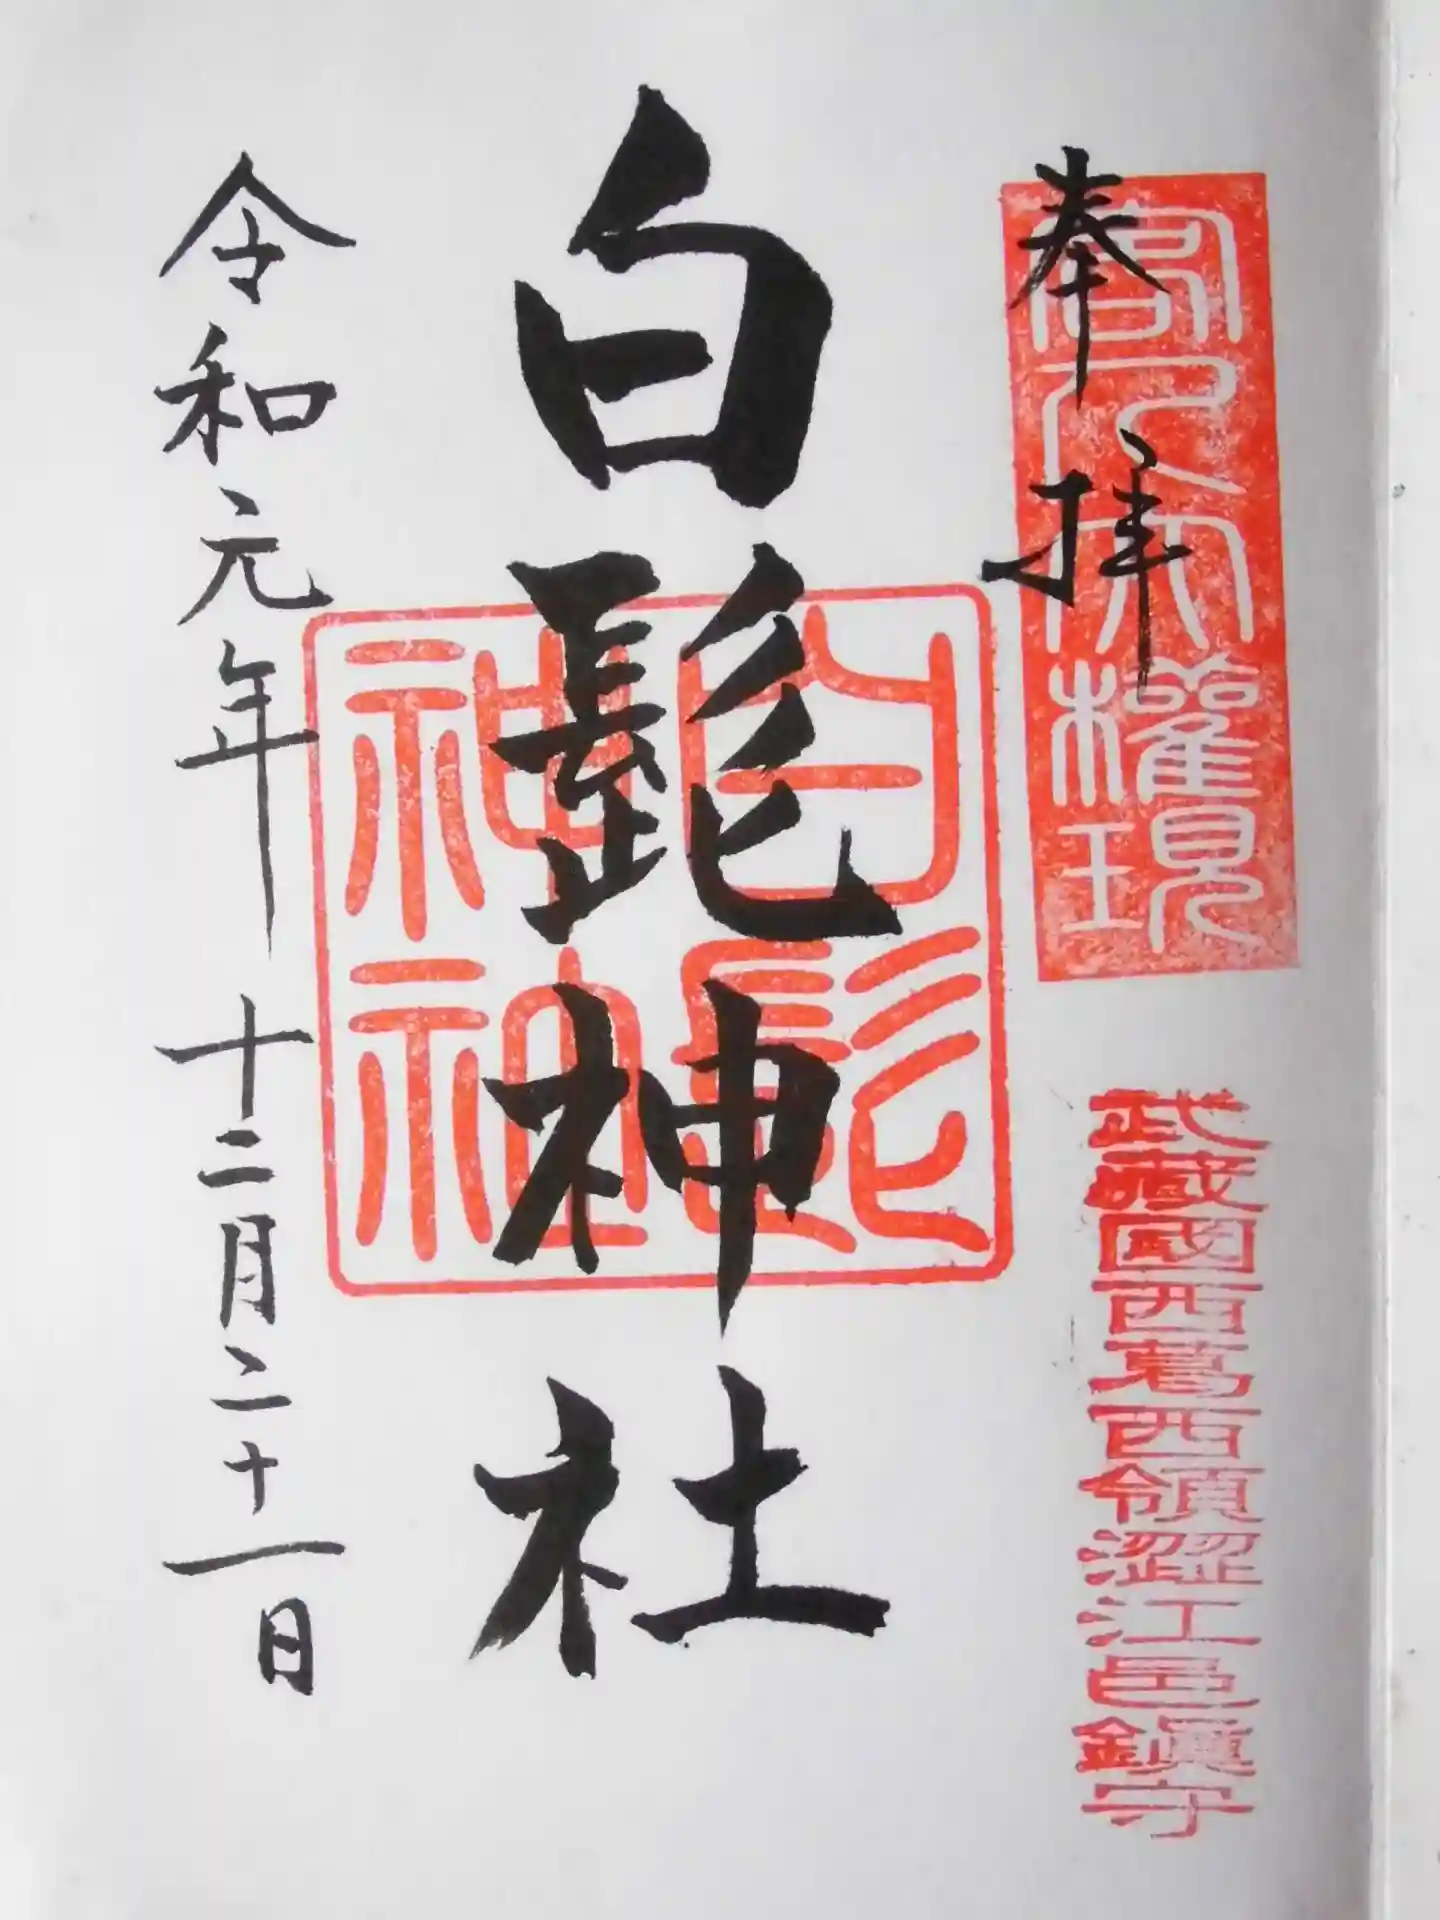 奉拝
客人大權現
武藏國西葛西領澀江邑鎭守
白髭神社
白髭神社
令和元年 十二月二十一日